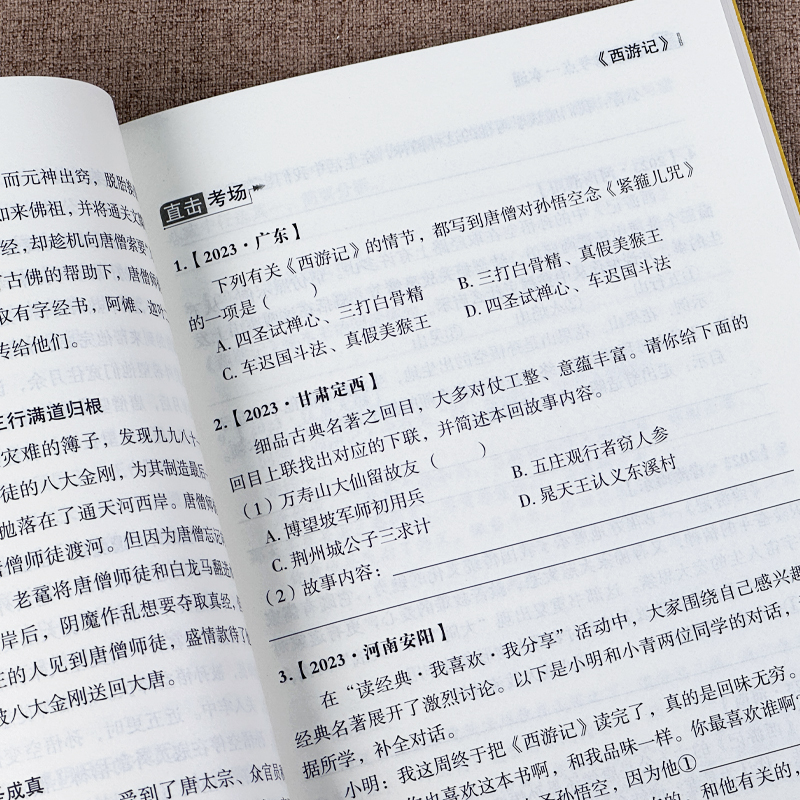 而元神出窍，脱胎换
如来佛祖，并将通关文
经，却趁机向唐僧索要
了古佛的帮助下，唐僧
取有字经书，阿傩、迦叶
传给他们。
三行满道归根
灾难的簿子，发现九九八十
徒的八大金刚，为其制造最后
他落在了通天河西岸。唐僧
唐僧师徒渡河。但因为唐僧忘记
老鼋将唐僧师徒和白龙马翻进
岸后，阴魔作乱想要夺取真经，
庄的人见到唐僧师徒，盛情款待了
被八大金刚送回大唐。
成真
受到了唐太宗、众官员
《西游记》
直击考场
1.【2023·广东】
下列有关《西游记》的情节，都写到唐僧对孙悟空念《紧箍儿咒》
的一项是（　　）
A. 四圣试禅心、三打白骨精　B. 三打白骨精、真假美猴王
C. 车迟国斗法、真假美猴王　D. 四圣试禅心、车迟国斗法
2.【2023·甘肃定西】
细品古典名著之回目，大多对仗工整、意蕴丰富。请你给下面的
回目上联找出对应的下联，并简述本回故事内容。
（1）万寿山大仙留故友（　　）
A. 博望坡军师初用兵　B. 五庄观行者窃人参
C. 荆州城公子三求计　D. 晁天王认义东溪村
（2）故事内容：
3.【2023·河南安阳】
在“读经典·我喜欢·我分享”活动中，大家围绕自己感兴趣
经典名著展开了激烈讨论。以下是小明和小青两位同学的对话，
据所学，补全对话。
小明：我这周终于把《西游记》读完了，真的是回味无穷。
你也喜欢这本书啊，和我品味一样。你最喜欢谁啊？
是孙悟空，因为他①
的，和他有关的，